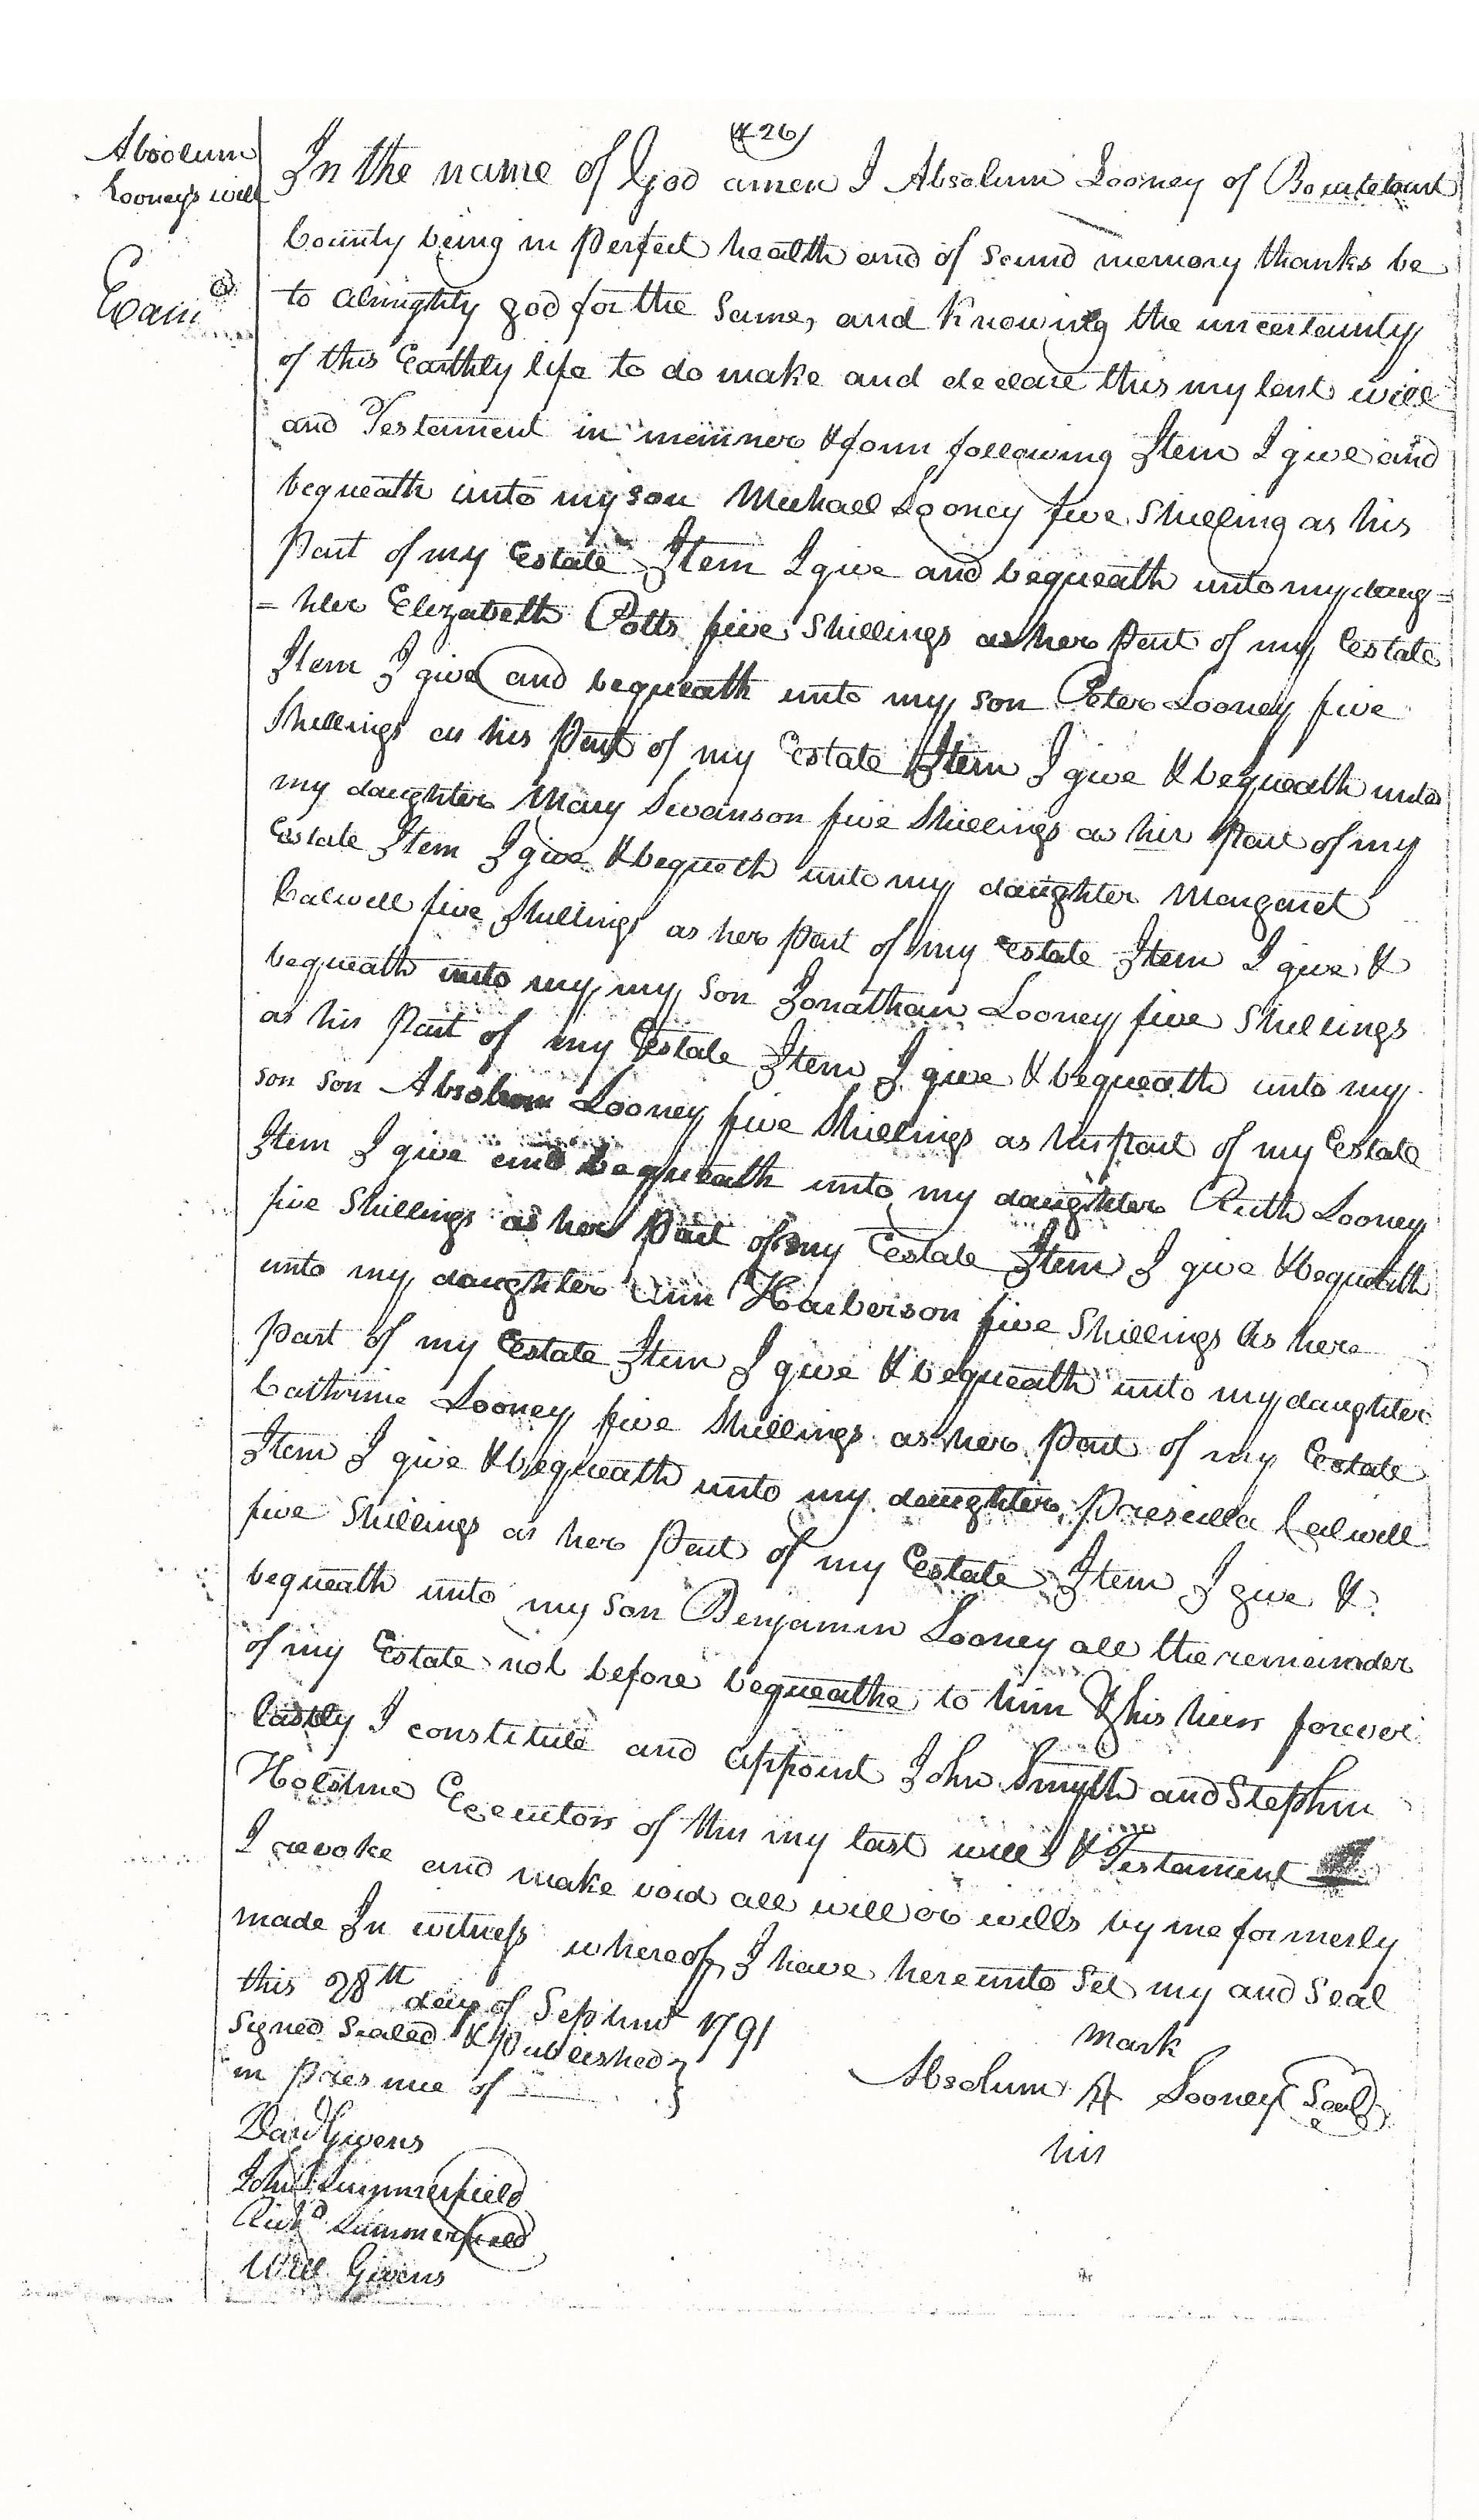 (426)
Absolum
Looney's will
Exam^d
In the name of God amen I Absolum Looney of Boutetourt
County being in perfect health and of sound memory thanks be
to almighty god for the same, and Knowing the uncertainty
of this Earthly life to do make and declare this my last will
and Testament in manner & form following Item I give and
bequeath unto my son Michael Looney five Shilling as his
Part of my Estate Item I give and bequeath unto my daug=
=hter Elizabeth Potts five Shillings as her part of my Estate
Item I give and bequeath unto my son Peter Looney five
Shillings as his Part of my Estate Item I give & bequeath unto
my daughter Mary Swanson five Shillings as her Part of my
Estate Item I give & bequeth unto my daughter Margaret
Calwell five Shillings as her part of my Estate Item I give &
bequeath unto my my son Jonathan Looney five Shillings
as his Part of my Estate Item I give & bequeath unto my
son son Absolum Looney five Shillings as his part of my Estate
Item I give and bequeath unto my daughter Ruth Looney
five Shillings as her Part of my Estate Item I give & bequeath
unto my daughter Ann Harberson five Shillings as here
Part of my Estate Item I give & bequeath unto my daughter
Cathrine Looney five Shillings as her Part of my Estate
Item I give & bequeath unto my daughter Priscilla Calwell
five Shillings as her Part of my Estate Item I give &
bequeath unto my son Benjamin Looney all the remainder
of my Estate not before bequeathe to him & his heirs forever
Lastly I constitute and appoint John Smyth and Stephen
Holstine Executors of this my last will & Testament
I revoke and make void all will or wills by me formerly
made In witness whereof I have hereunto set my and Seal
this 28th day of Septemr 1791
Signed Sealed & Published }
in presence of
mark
Absolum A Looney (Seal)
his
Davd Givens
John Summerfield
Richd Summerfield
Will Givens